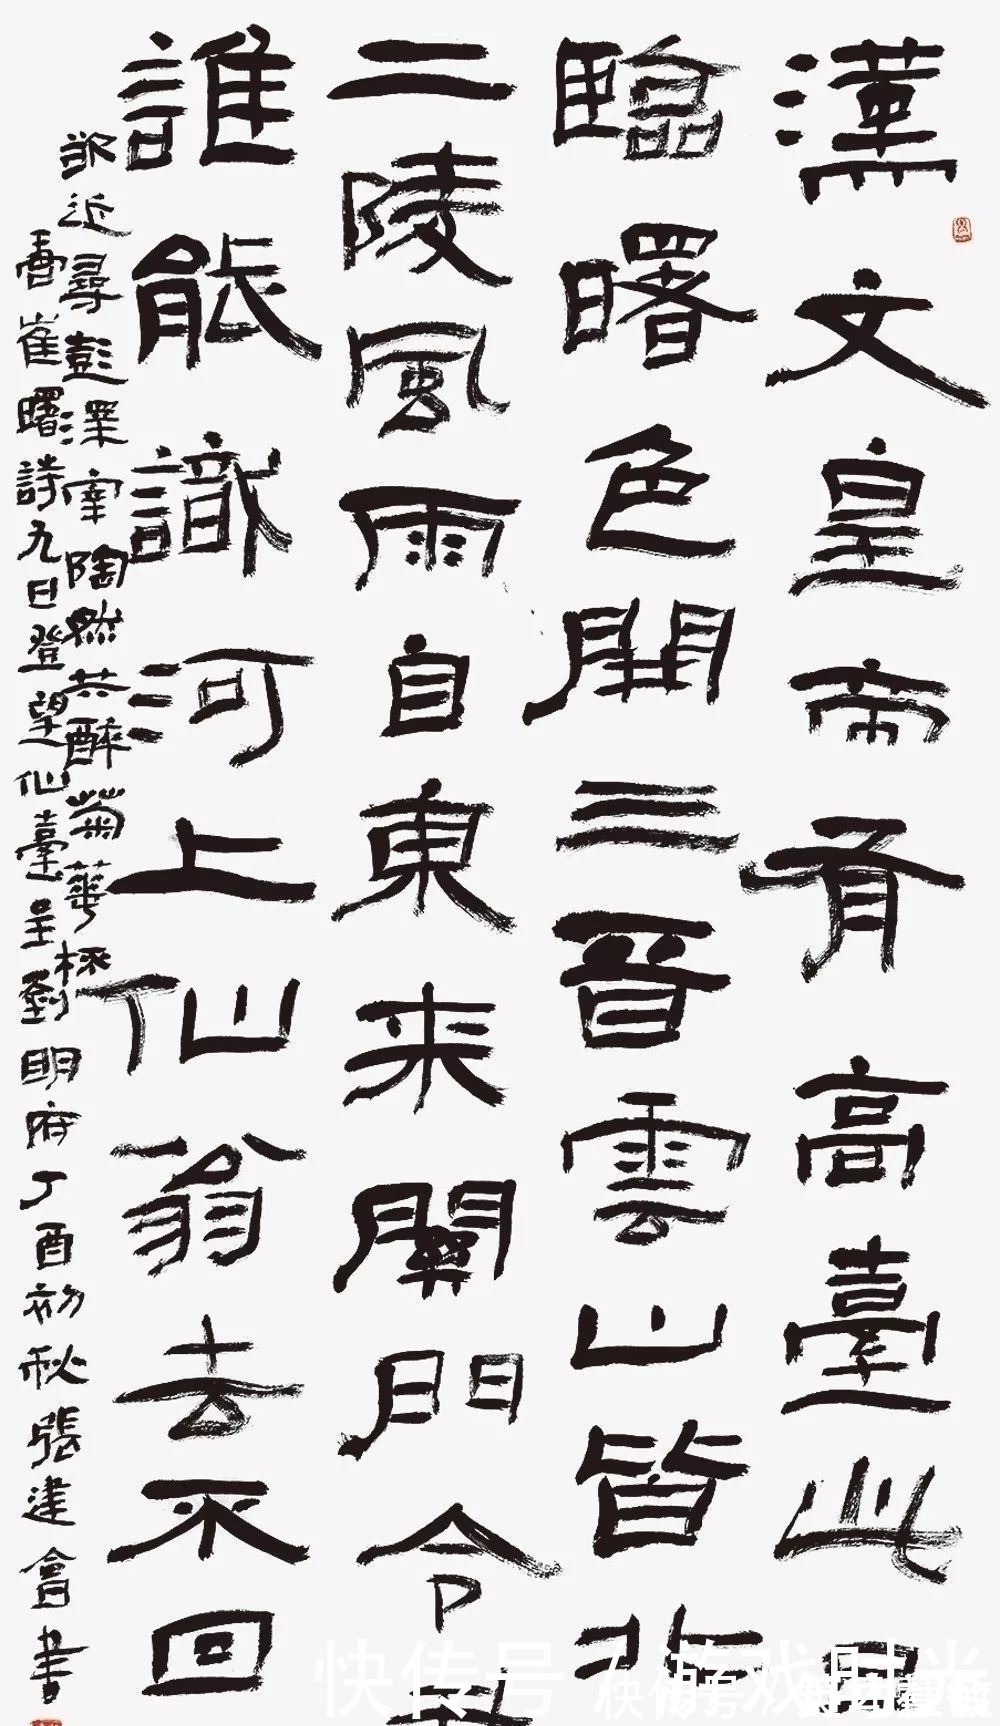 漢文皇帝有高臺此日
臨曙色開三晉雲山皆北
二陵風雨自東来關門令
誰能識河上仙翁去不回
欲近尋彭澤宰陶然共醉菊華桮
唐崔曙詩九日登望仙臺呈劉明府丁酉初秋張建會書
快传号 / 游戏时光